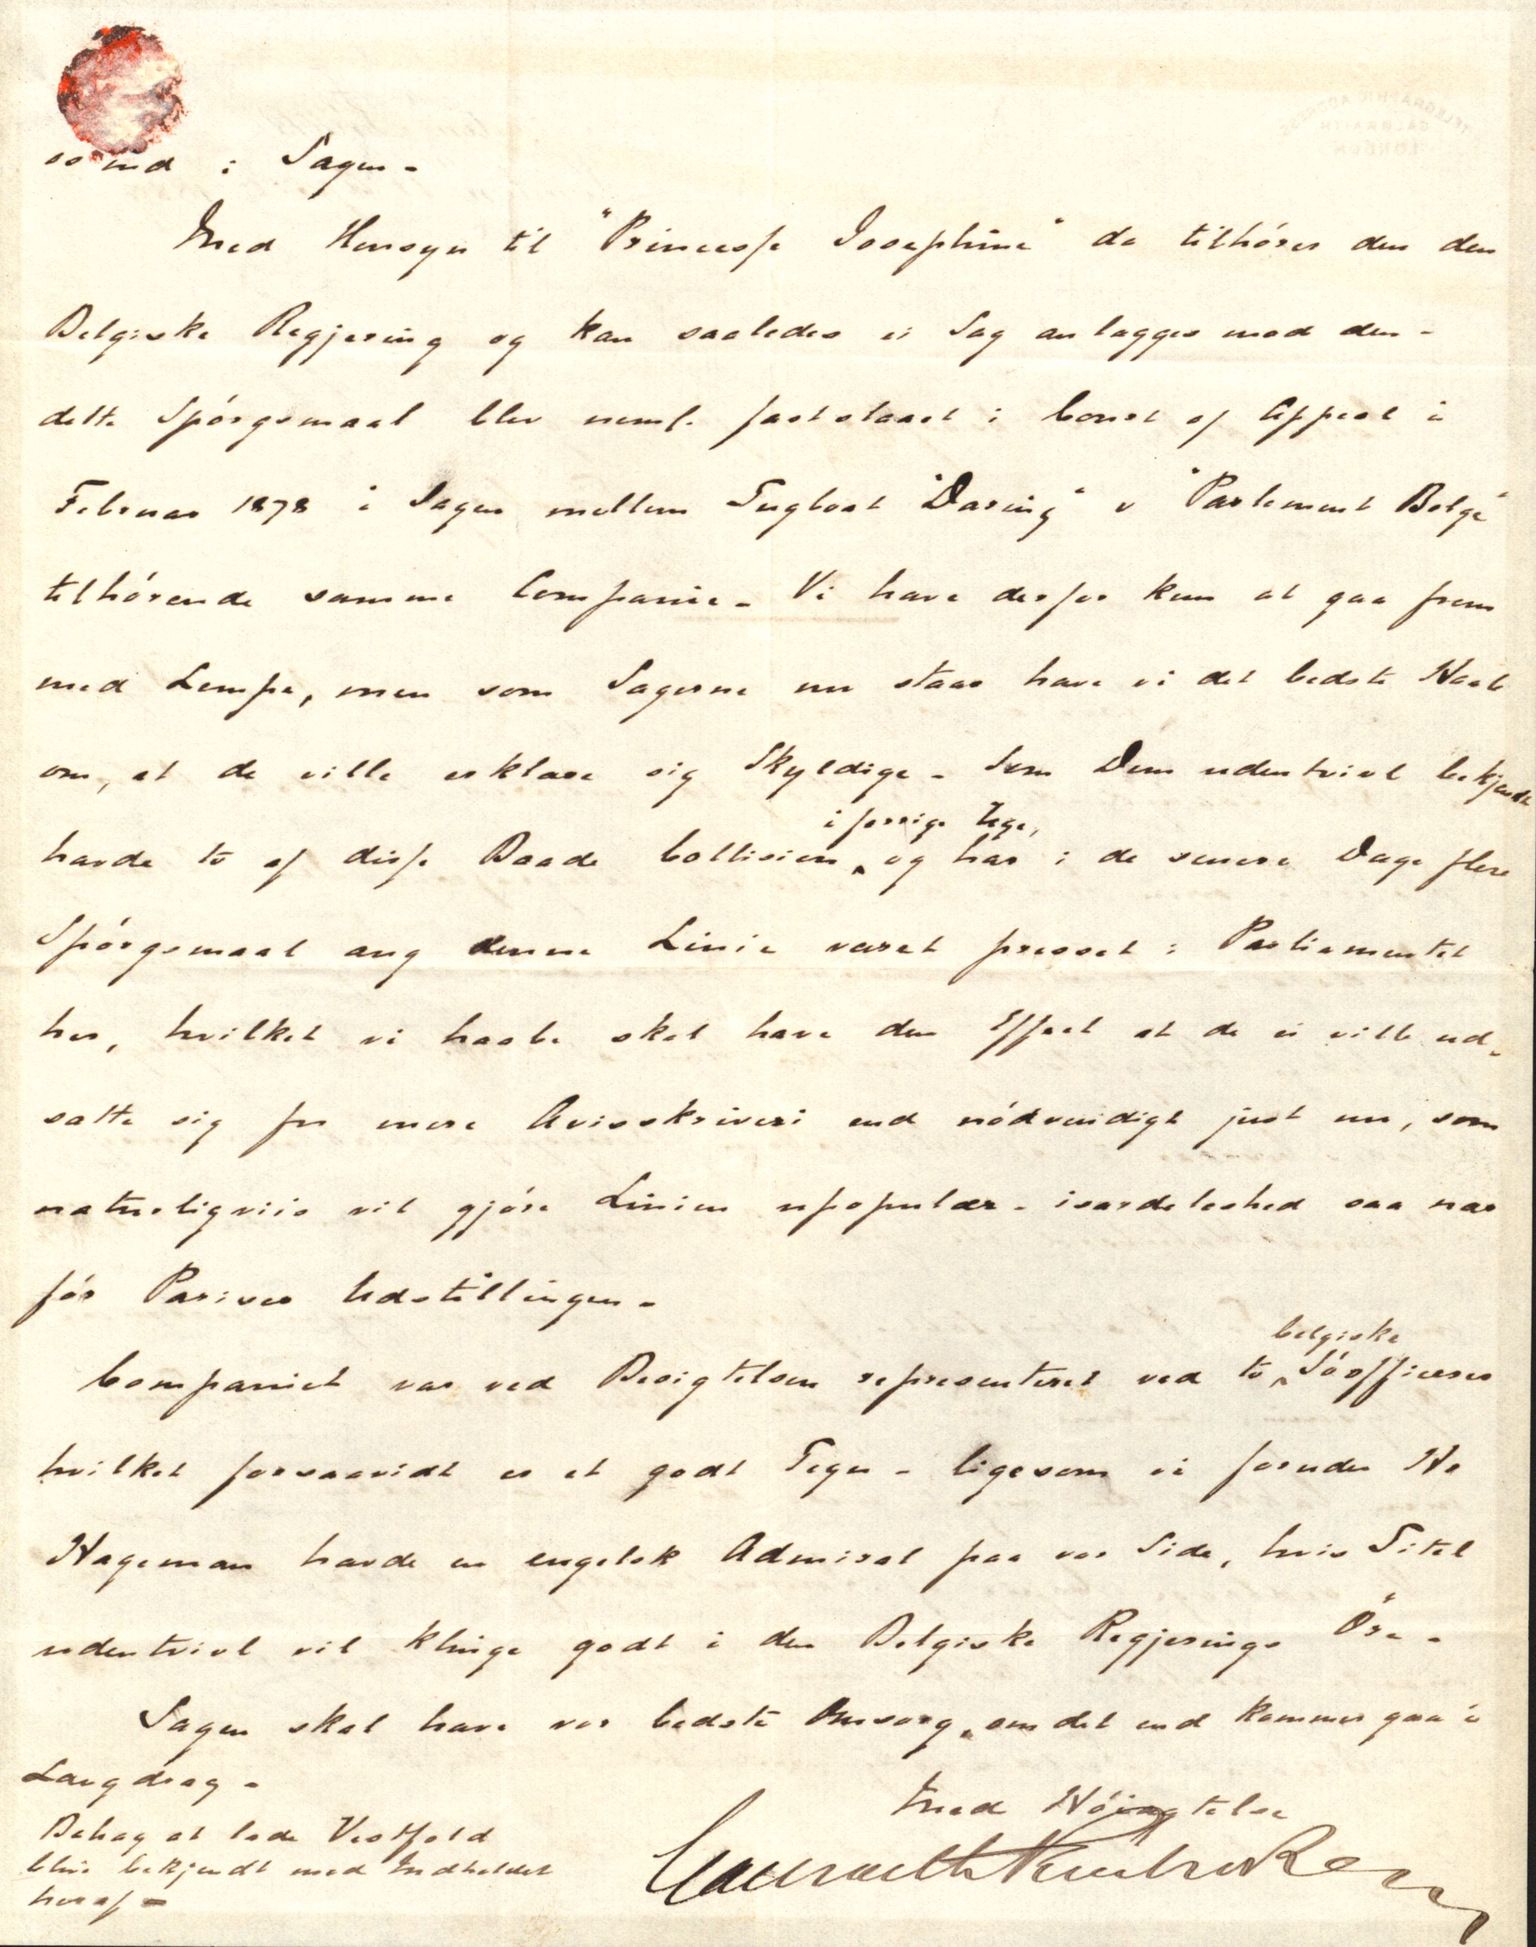 ind i Sagen -
Med Hensyn til "Princesse Josephine" da tilhører den den
Belgiske Regjering og kan saaledes ei Sag anlægges mod den -
dette Spørgsmaal blev neml. fastslaaet i Court of Appeal i
Februar 1878 i Sagen mellem Tugboat "Daring" v "Parlement Belge"
tilhørende samme Companie - Vi have derfor kun at gaa frem
med Lempe, men som Sagerne nu staar have vi det bedste Haab
om, at de ville erklære sig Skyldige - Som Dem udentvivl bekjendt
havde to af disse Baade Collision i forrige Uge, og har i de senere Dage flere
Spørgsmaal ang denne Linie været presset i Parliamentet
her, hvilket vi haabe skal have den Effect at de ei ville ud-
sætte sig for mere Avisskriveri end nødvendigt just nu, som
naturligviis vil gjøre Linien upopulær - isærdeleshed saa nær
før Pariser Udstillingen -
Compagniet var ved Besigtelsen representeret ved to belgiske Søofficerer
hvilket forsaavidt er et godt Tegn - ligesom vi foruden Hr
Hageman havde en engelsk Admiral paa vor Side, hvis Titel
udentvivl vil klinge godt i den Belgiske Regjerings Øre -
Sagen skal have vor bedste Omsorg, om det end kommer gaa i
Langdrag -
Med Høiagtelse
Behag at lade Vestfold
blive bekjendt med Indholdet
heraf -
TELEGRAPHIC ADDRESS
GALBRAITH
LONDON